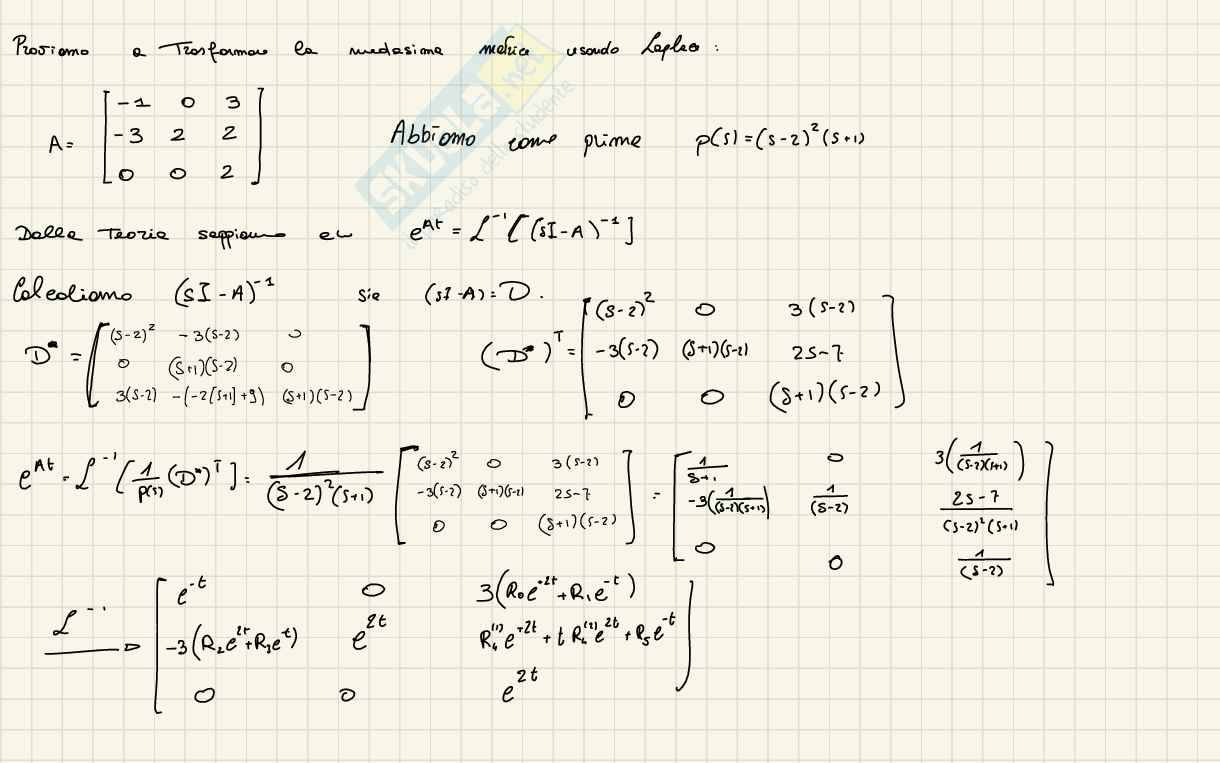 Proviamo a Trasformare la medesima matrice usando Laplace :
A = [ -1 0 3
-3 2 2
0 0 2 ]
Abbiamo come prima p(s) = (s-2)²(s+1)
SKUOLA.net
Dalla Teoria sappiamo che e^{At} = L^{-1} [ (sI-A)^{-1} ]
Calcoliamo (sI-A)^{-1} sia (sI-A) = D.
D* = [ (s-2)² -3(s-2) 0
0 (s+1)(s-2) 0
3(s-2) -(-2[s+1]+9) (s+1)(s-2) ]
(D*)^T = [ (s-2)² 0 3(s-2)
-3(s-2) (s+1)(s-2) 2s-7
0 0 (s+1)(s-2) ]
e^{At} = L^{-1} [ 1/p(s) (D*)^T ] = 1/((s-2)²(s+1)) [ (s-2)² 0 3(s-2)
-3(s-2) (s+1)(s-2) 2s-7
0 0 (s+1)(s-2) ]
= [ 1/(s+1) 0 3(1/((s-2)(s+1)))
-3(1/((s-2)(s+1))) 1/(s-2) (2s-7)/((s-2)²(s+1))
0 0 1/(s-2) ]
L^{-1} → [ e^{-t} 0 3(R₀e^{+2t}+R₁e^{-t})
-3(R₂e^{2t}+R₃e^{-t}) e^{2t} R₄^{(1)}e^{+2t}+t R₄^{(2)}e^{2t}+R₅e^{-t}
0 0 e^{2t} ]